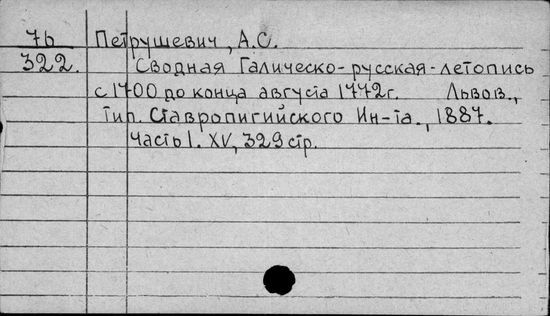 76 Петрушевич, А.С.
322. Сводная Галическо-русская-летопись
с 1700 до конца августа 1772г. Львов.,
тип. Ставропигийского Ин-та., 1887.
Часть I. XV, 329 стр.